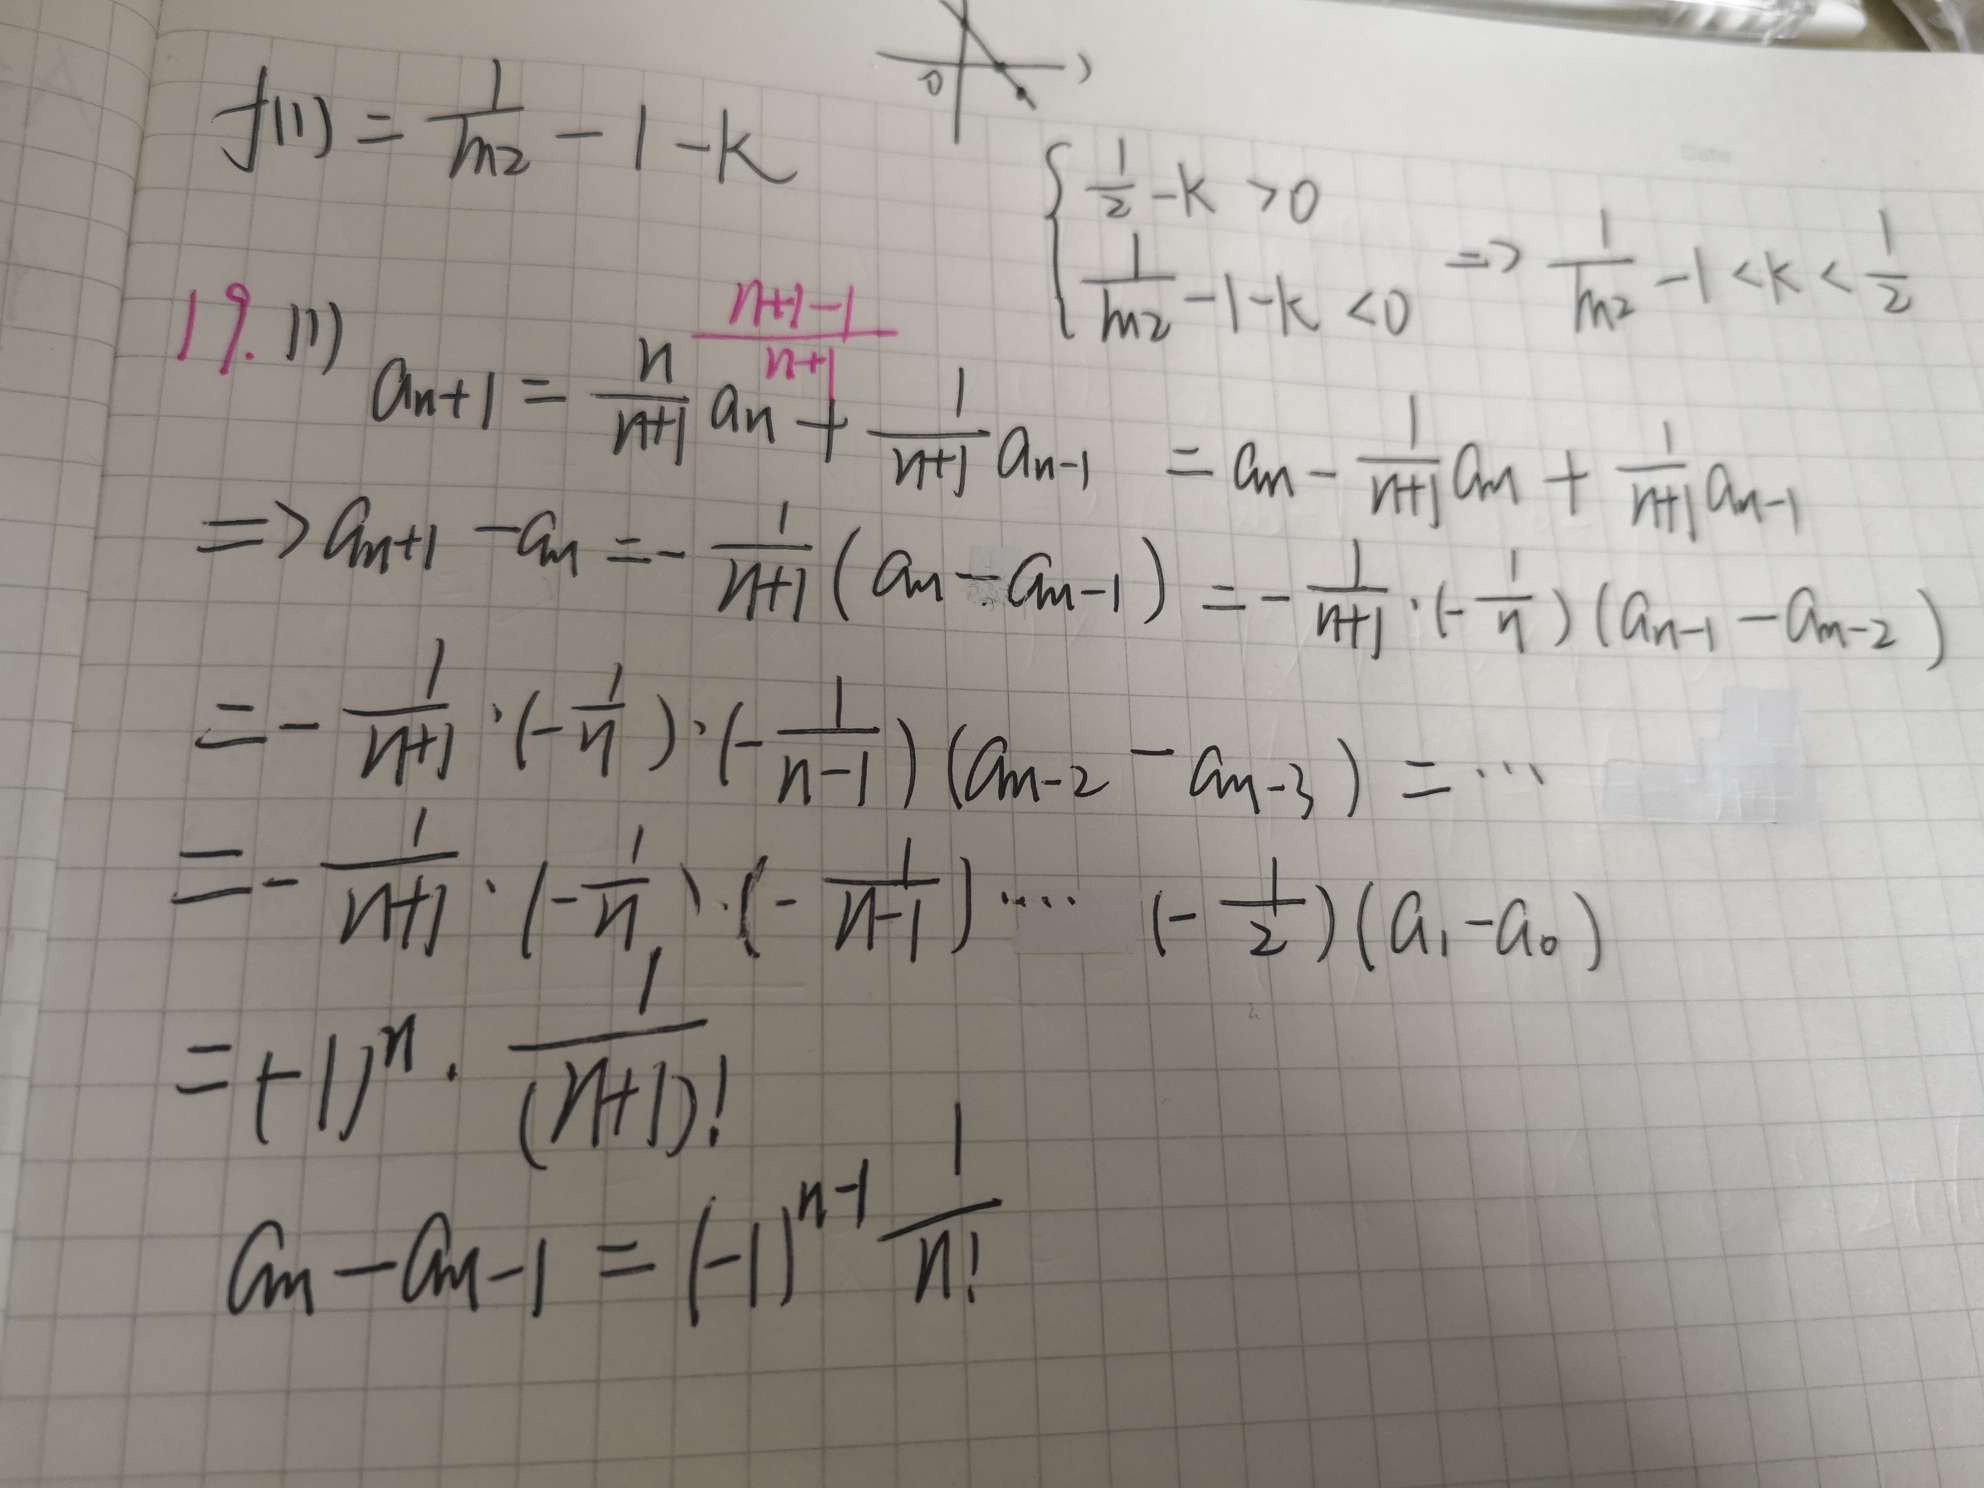 0
f(1) = 1/ln2 - 1 - k
{ 1/2 - k > 0
{ 1/ln2 - 1 - k < 0 => 1/ln2 - 1 < k < 1/2
19. (1)
(n+1-1)/(n+1)
a_{n+1} = n/(n+1) a_n + 1/(n+1) a_{n-1} = a_n - 1/(n+1) a_n + 1/(n+1) a_{n-1}
=> a_{n+1} - a_n = - 1/(n+1) (a_n - a_{n-1}) = - 1/(n+1) · (- 1/n) (a_{n-1} - a_{n-2})
= - 1/(n+1) · (- 1/n) · (- 1/(n-1)) (a_{n-2} - a_{n-3}) = ···
= - 1/(n+1) · (- 1/n) · (- 1/(n-1)) ···· (- 1/2) (a_1 - a_0)
= (-1)^n · 1/(n+1)!
a_n - a_{n-1} = (-1)^{n-1} 1/n!